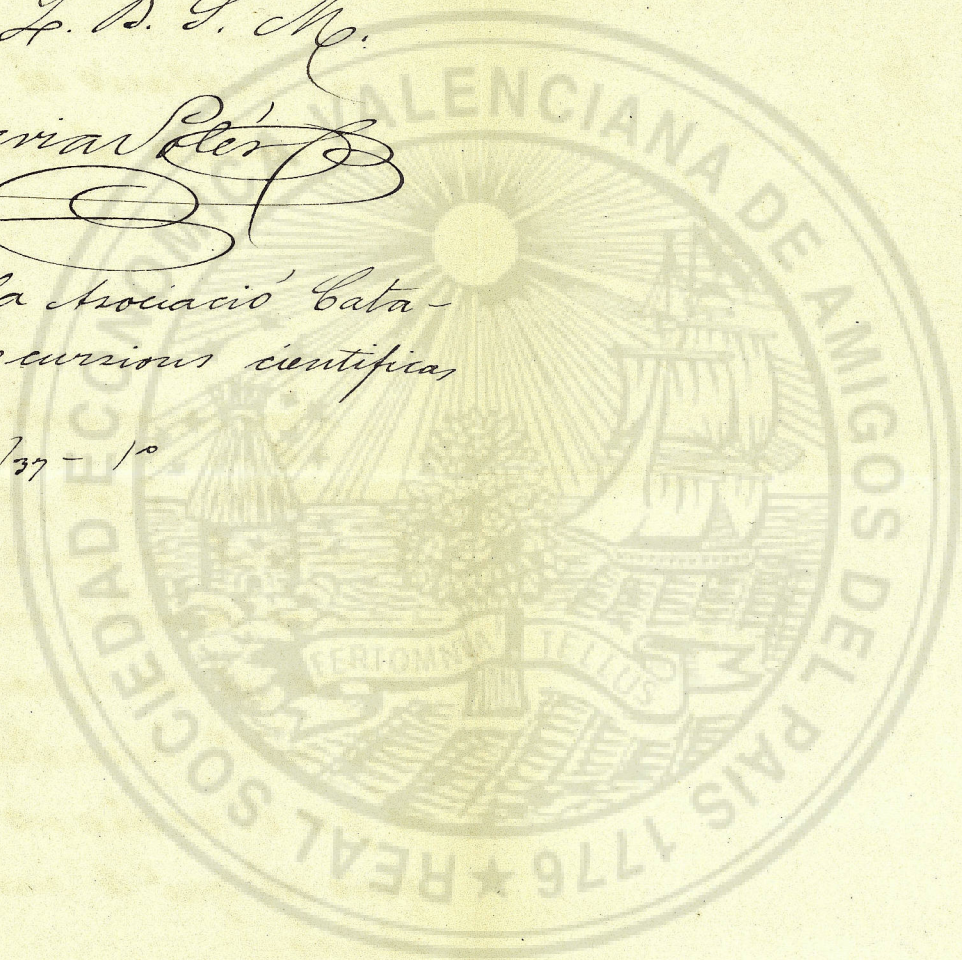 L. B. S. M.
eria Soler
la Asociació Cata-
cursions cientificas
/37 - 1º
REAL SOCIEDAD ECONOMICA VALENCIANA DE AMIGOS DEL PAIS 1776 ★
FERT OMNIA TELLUS